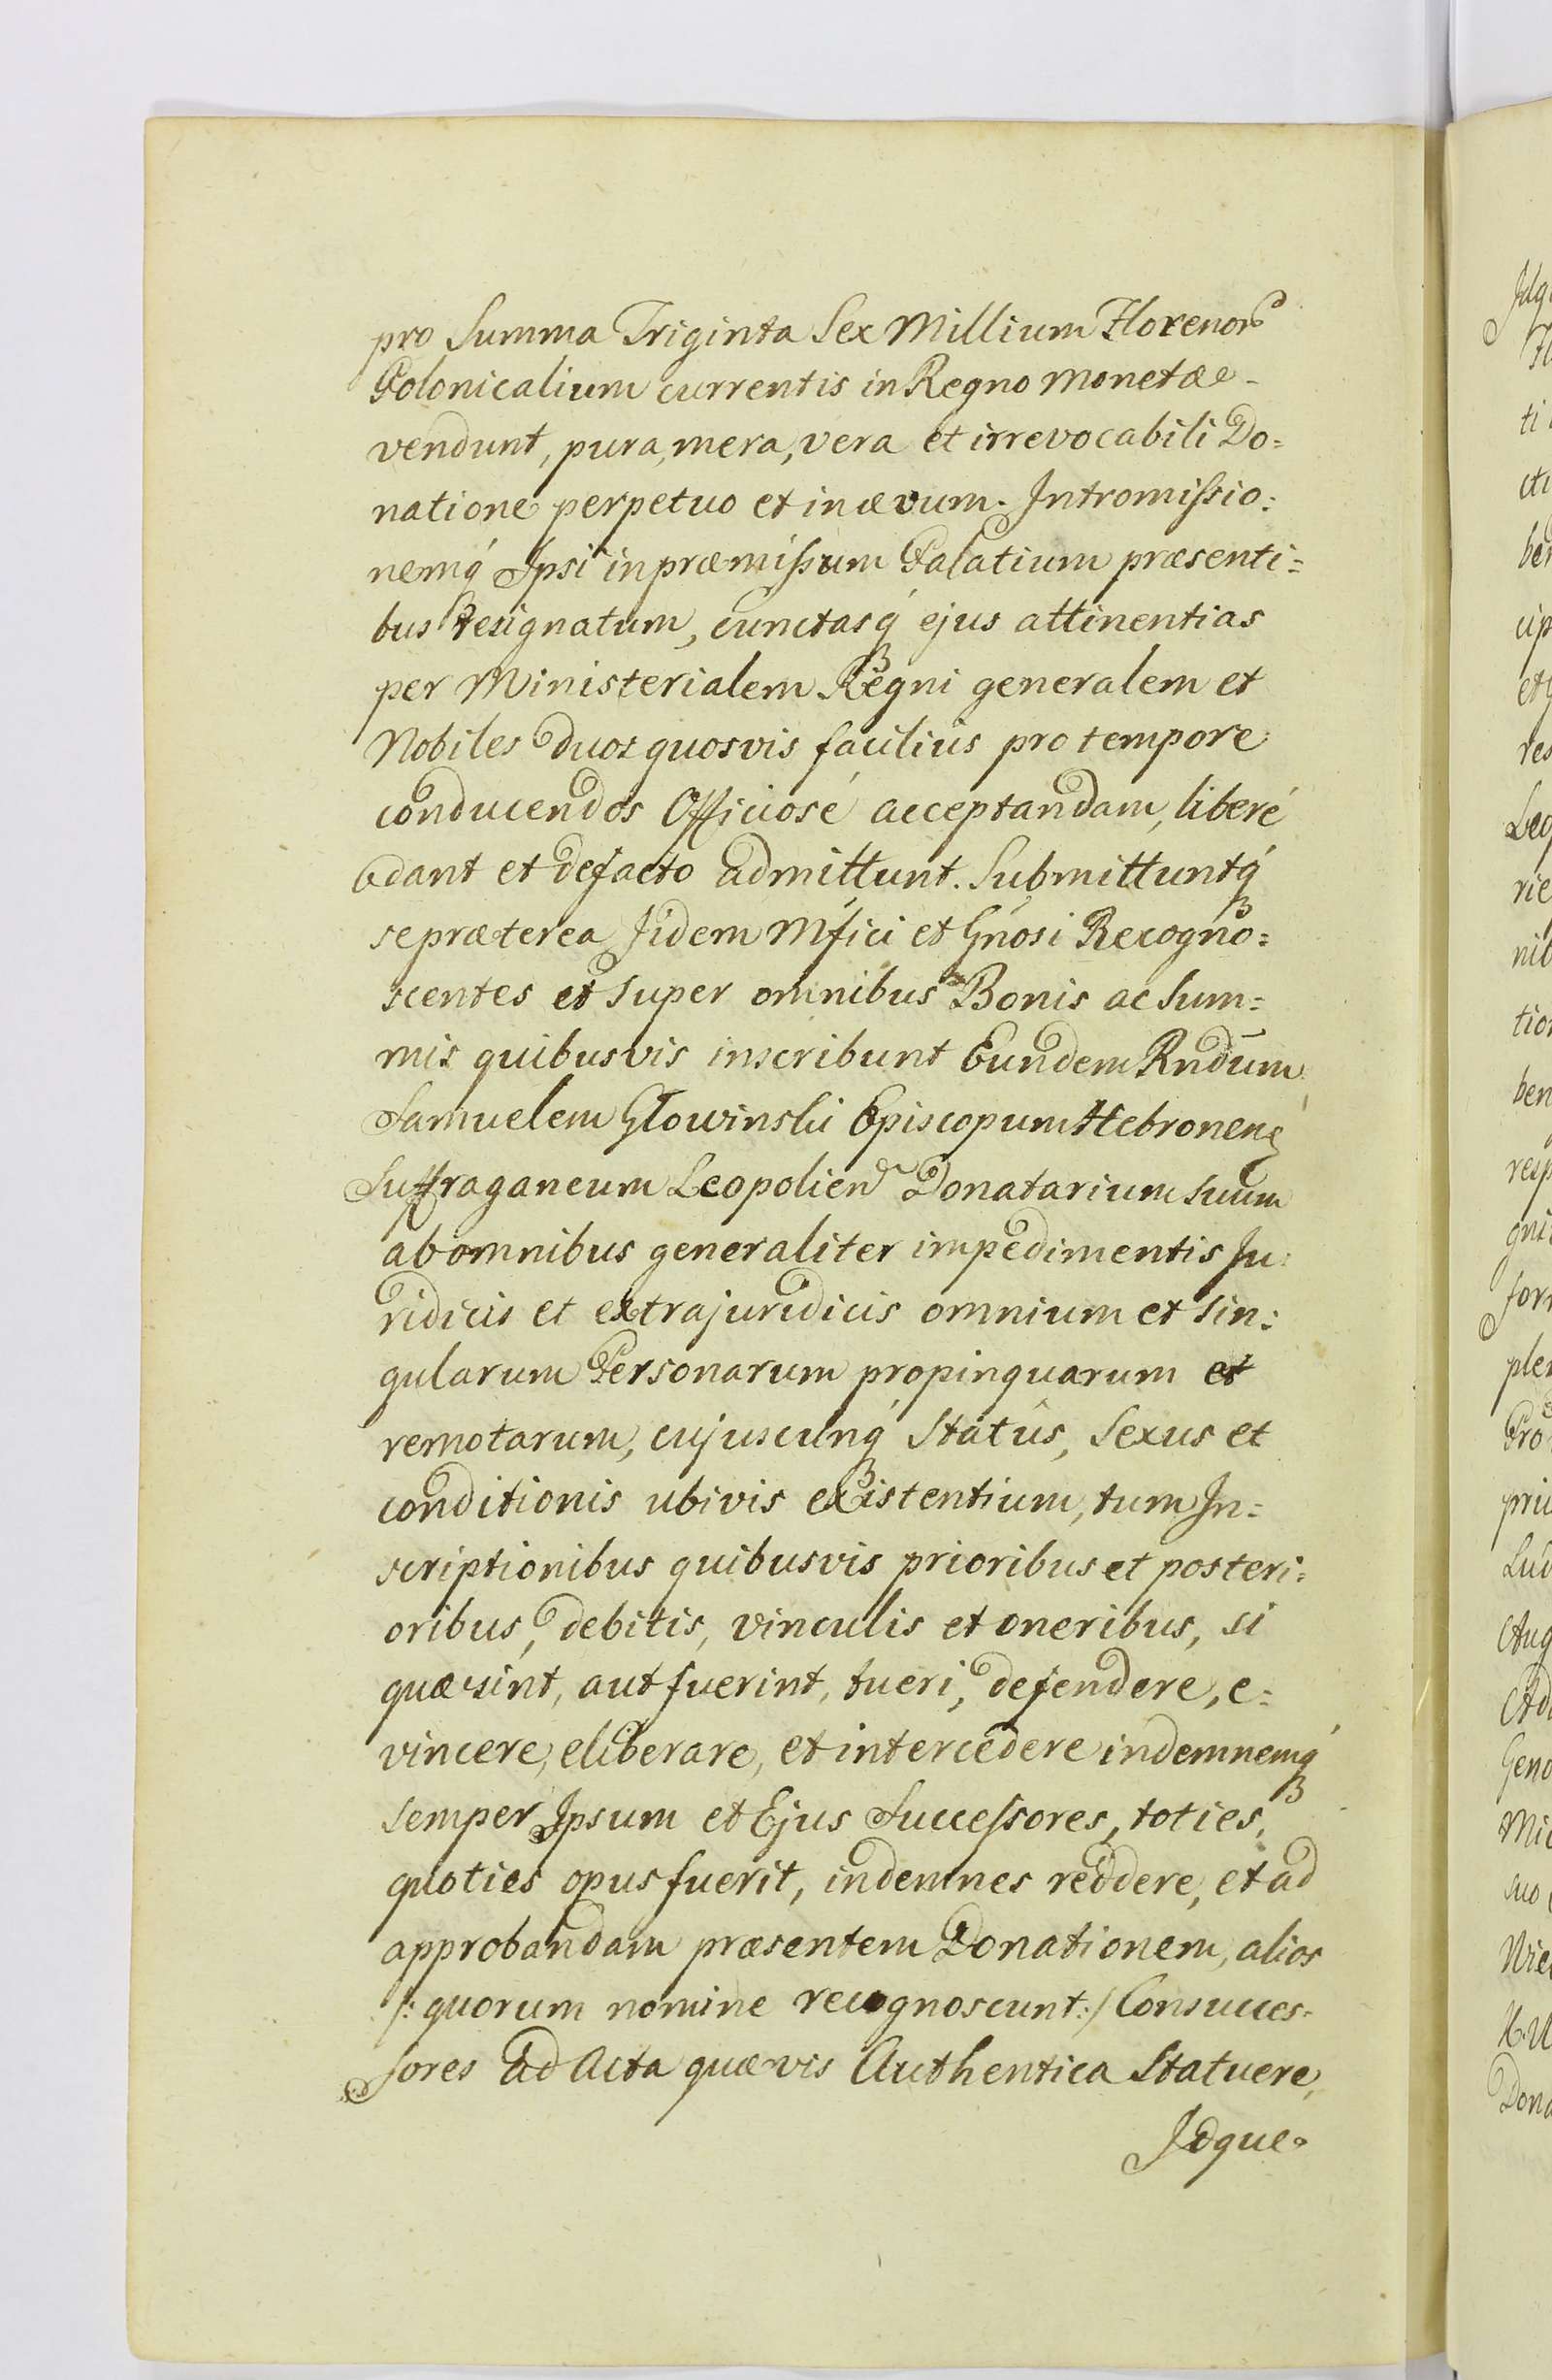 pro Summa Triginta Sex Millium Florenor
Polonicalium currentis in Regno Monetæ
vendunt, pura, mera, vera et irrevocabili Do=
natione perpetuo et in ævum. Intromiſsio=
nemq́ Ipsi in præmiſsum Palatium præsenti=
bus designatum, cunctasq́ ejus attinentias
per Ministerialem Regni generalem et
Nobiles duos quosvis facilius pro tempore
conducendos Officiosé acceptandam, liberé
dant et de facto admittunt. Submittuntq́
se præterea Jidem Mfici et Gnosi Recogno=
scentes et super omnibus Bonis ac Sum=
mis quibusvis inscribunt Eundem Rndum
Samuelem Głowinski Episcopum Hebronens
Suffraganeum Leopolien Donatarium suum
ab omnibus generaliter impedimentis Ju=
ridicis et extrajuridicis omnium et sin=
gularum Personarum propinquarum et
remotarum, cujuscunq́ Statûs, Sexus et
conditionis ubivis existentium, tum In=
scriptionibus quibusvis prioribus et posteri=
oribus, debitis, vinculis et oneribus, si
quæ sint, aut fuerint, tueri, defendere, e=
vincere, eliberare, et intercedere indemnemq́
semper Ipsum et Ejus Succeſsores, toties,
quoties opus fuerit, indemnes reddere, et ad
approbandam præsentem Donationem, alios
/: quorum nomine recognoscunt :/ Consucces=
sores ad Acta quævis Authentica Statuere,
Idque